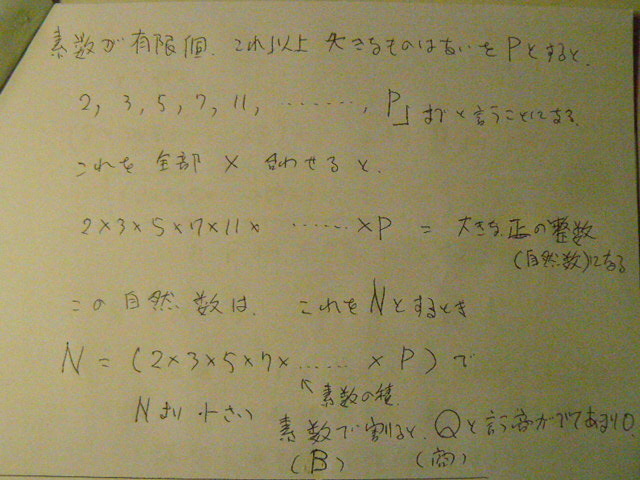 素数が有限個、これ以上大きなものはないをPとすると、
2, 3, 5, 7, 11, ‥‥‥‥, P」までと言うことになる。
これを全部×合わせると、
2×3×5×7×11× ‥‥‥ ×P = 大きな正の整数
(自然数)になる
この自然数は、これをNとするとき
N = (2×3×5×7×‥‥‥ × P) で
↖素数の積
Nより小さい
素数で割ると、Qと言う商がでてあまり0.
(B) (商)